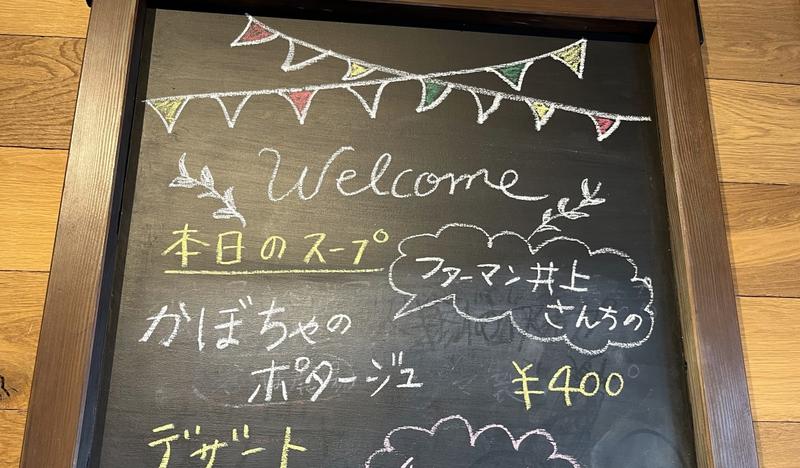 Welcome
本日のスープ
ファターマン井上
さんちの
かぼちゃの
ポタージュ
¥400
デザート